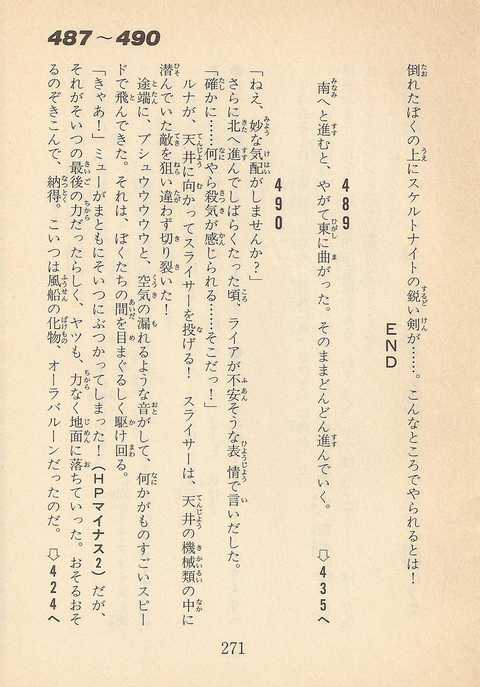 487～490
倒れたぼくの上にスケルトナイトの鋭い剣が……。こんなところでやられるとは！
END
489
南へと進むと、やがて東に曲がった。そのままどんどん進んでいく。
⇨435へ
490
「ねえ、妙な気配がしませんか？」
さらに北へ進んでしばらくたった頃、ライアが不安そうな表情で言いだした。
「確かに……何やら殺気が感じられる……そこだっ！」
ルナが、天井に向かってスライサーを投げる！　スライサーは、天井の機械類の中に
潜んでいた敵を狙い違わず切り裂いた！
途端に、ブシュウウウウウと、空気の漏れるような音がして、何かがものすごいスピー
ドで飛んできた。それは、ぼくたちの間を目まぐるしく駆け回る。
「きゃあ！」ミューがまともにそいつにぶつかってしまった！（HPマイナス2）だが、
それがそいつの最後の力だったらしく、ヤツも、力なく地面に落ちていった。おそるおそ
るのぞきこんで、納得。こいつは風船の化物、オーラバルーンだったのだ。　⇨424へ
271